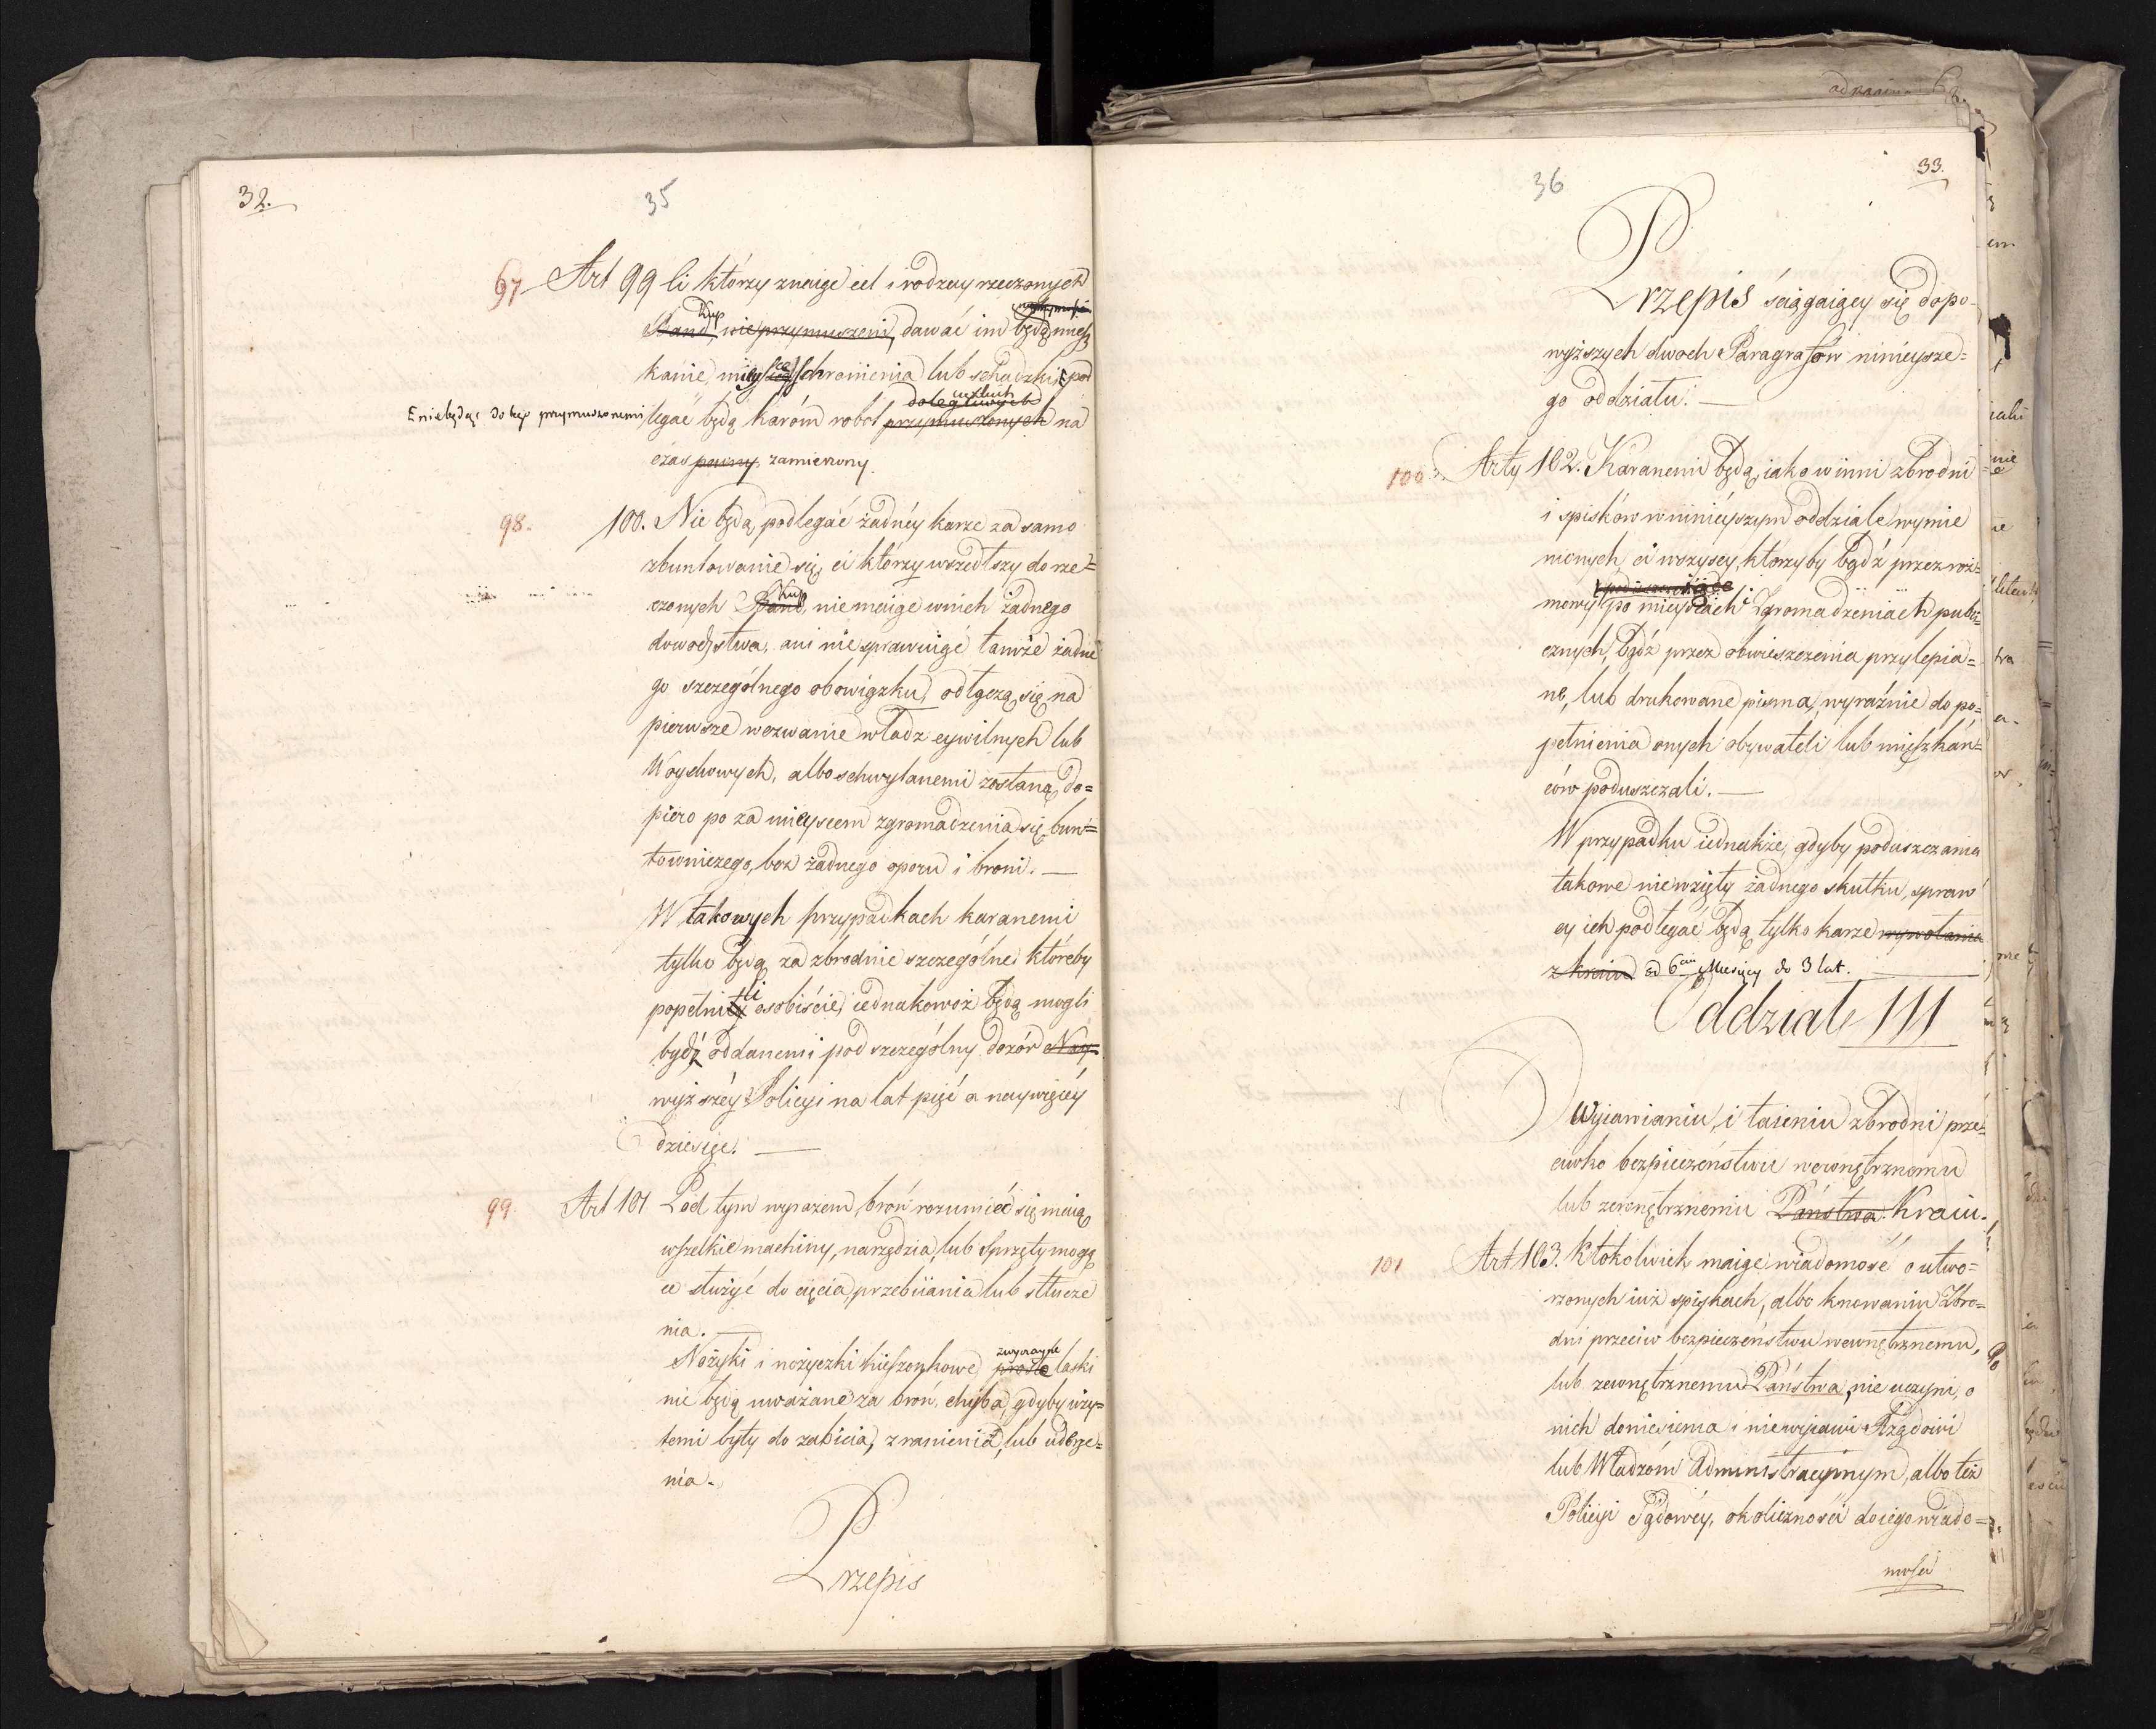 32.
35
97 Art 99 Ci którzy znaiąc cel i rodzay rzeczonych
Kup
Band, nie przymuszeni, dawać im będą miesz
kanie, mieysce schronienia lub schadzki, pod
ciężkich
dolegliwych
E niebędąc do tego przymuszonemi legać będą karóm robot przymuszonych na
czas pewny zamierzony.
98. 100. Nie będą podlegać żadnéy karze za samo
zbuntowanie się, ci którzy wszedłszy do rze=
Kup
czonych Band, niemaiąc w nich żadnego
dowodztwa, ani nie sprawuiąc tamże żadne
go szczególnego obowiązku, odłączą się na
pierwsze wezwanie władz cywilnych lub
Woyskowych, albo schwytanemi zostaną do=
piero po za mieyscem zgromadzenia się bun=
towniczego, bez żadnego oporu i broni. —
W takowych przypadkach karanemi
tylko będą za zbrodnie szczególne któreby
popełnili osobiście, iednakowoż będą mogli
bydź oddanemi pod szczególny dozór Nay-
wyższéy Policyi na lat pięć a naywięcéy
dziesięć. —
99. Art 101 Pod tym wyrazem broń rozumieć się maią
wszelkie machiny, narzędzia, lub sprzęty mogą
ce służyć do cięcia, przebiiania lub stłucze
nia. —
zwyczayne
Nożyki i nożyczki kieszonkowe, proste laski
nie będą uważane za broń, chyba, gdyby uży=
temi były do zabicia, zranienia, lub uderze=
nia.
Przepis
36
33.
Przepis ściągaiący się do po-
wyższych dwoch Paragrafów ninieysze=
go oddziału. —
100. Arty 102. Karanemi będą, iako winni zbrodni
i spisków w ninieyszym oddziale wymie
nionych, ci wszyscy, którzyby bądź przez roz=
mowy po mieyscach i Zgromadzeniach publi=
cznych, bądź przez obwieszczenia przylepia=
ne, lub drukowane pisma, wyraźnie do po=
pełnienia onych obywateli lub mieszkań=
ców poduszczali. —
W przypadku iednakże, gdyby poduszczania
takowe niewzięły żadnego skutku, spraw
cy ich podlegać będą tylko karze wywołania
z kraiu od 6ciu Miesięcy do 3 lat. —
Oddział III
O wyiawianiu, i taieniu zbrodni prze=
ciwko bezpieczeństwu wewnętrznemu
lub zewnętrznemu Państwa. Kraiu.
101 Art 103. Ktokolwiek maiąc wiadomość o utwo=
rzonych iuż spiskach, albo knowaniu Zbro=
dni przeciw bezpieczeństwu wewnętrznemu,
lub zewnętrznemu Państwa, nie uczyni, o
nich doniesienia i niewyiawi Rządowi
lub Władzóm Administracyinym, albo też
Policyi Sądowéy, okoliczności do iego wiado=
mości